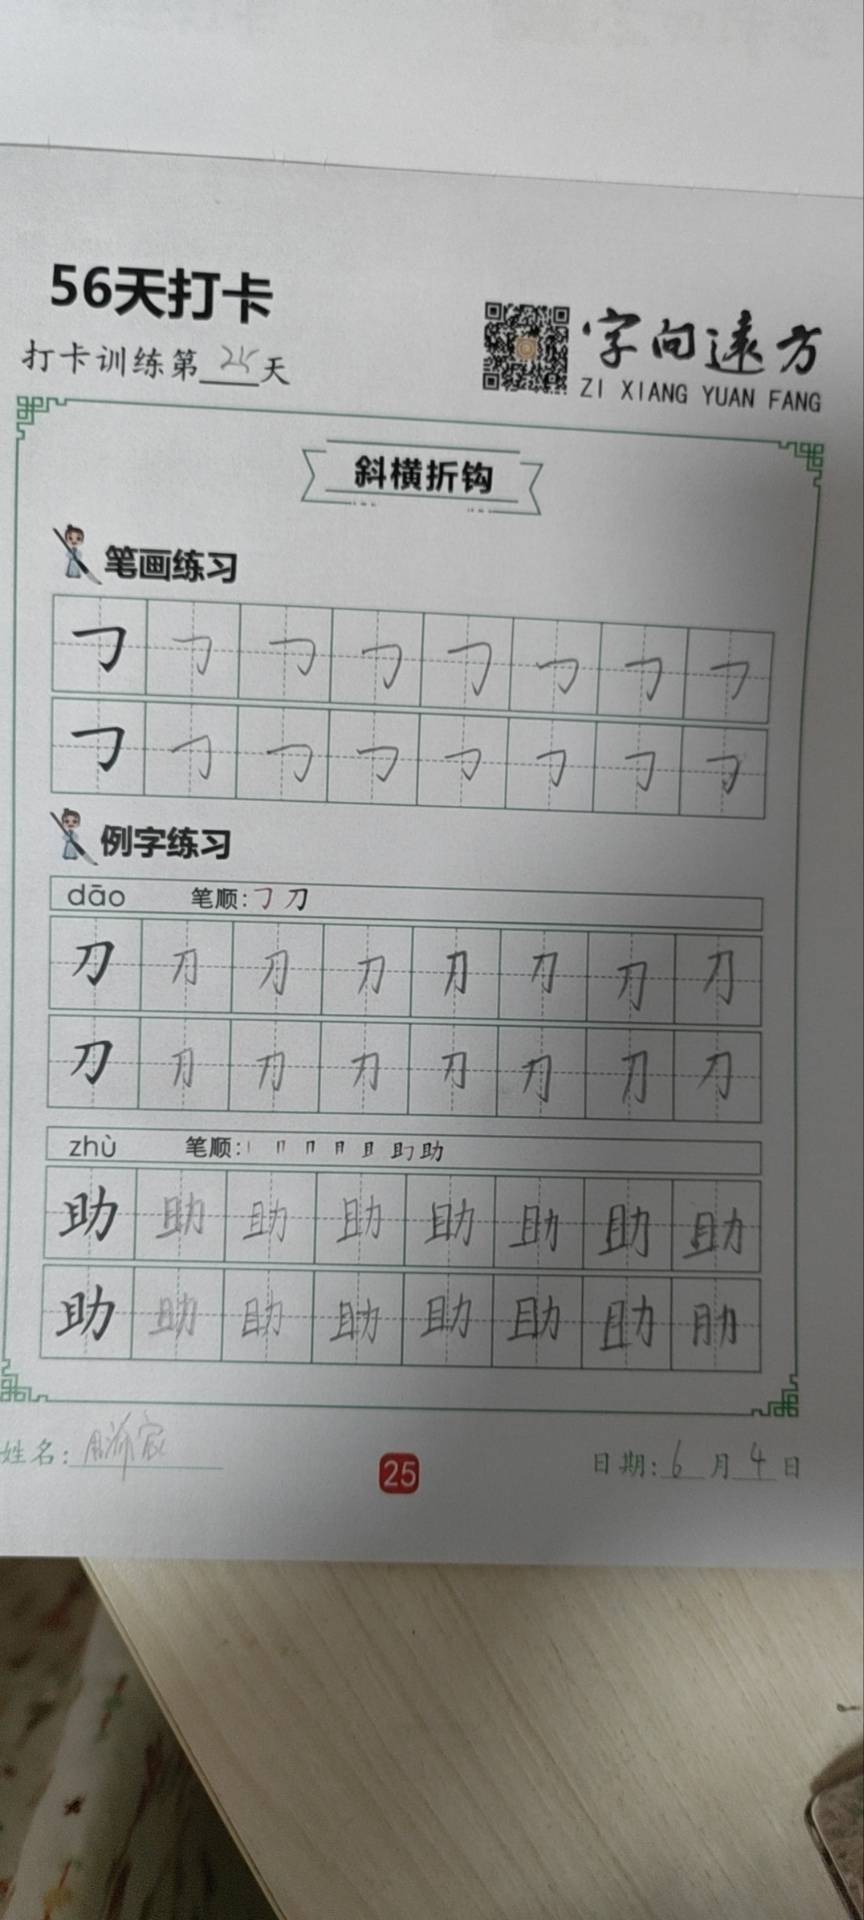 56天打卡
打卡训练第25天
字向遠方
ZI XIANG YUAN FANG
斜横折钩
笔画练习
㇆ ㇆ ㇆ ㇆ ㇆ ㇆ ㇆ ㇆
㇆ ㇆ ㇆ ㇆ ㇆ ㇆ ㇆ ㇆
例字练习
dāo 笔顺:㇆ 刀
刀 刀 刀 刀 刀 刀 刀 刀
刀 刀 刀 刀 刀 刀 刀 刀
zhù 笔顺: 助
助 助 助 助 助 助 助 助
助 助 助 助 助 助 助 助
姓名:
25
日期:6月4日